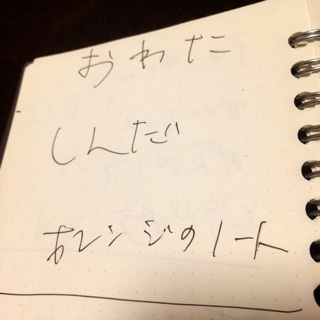 おわた
しんだ
オレンジのノート